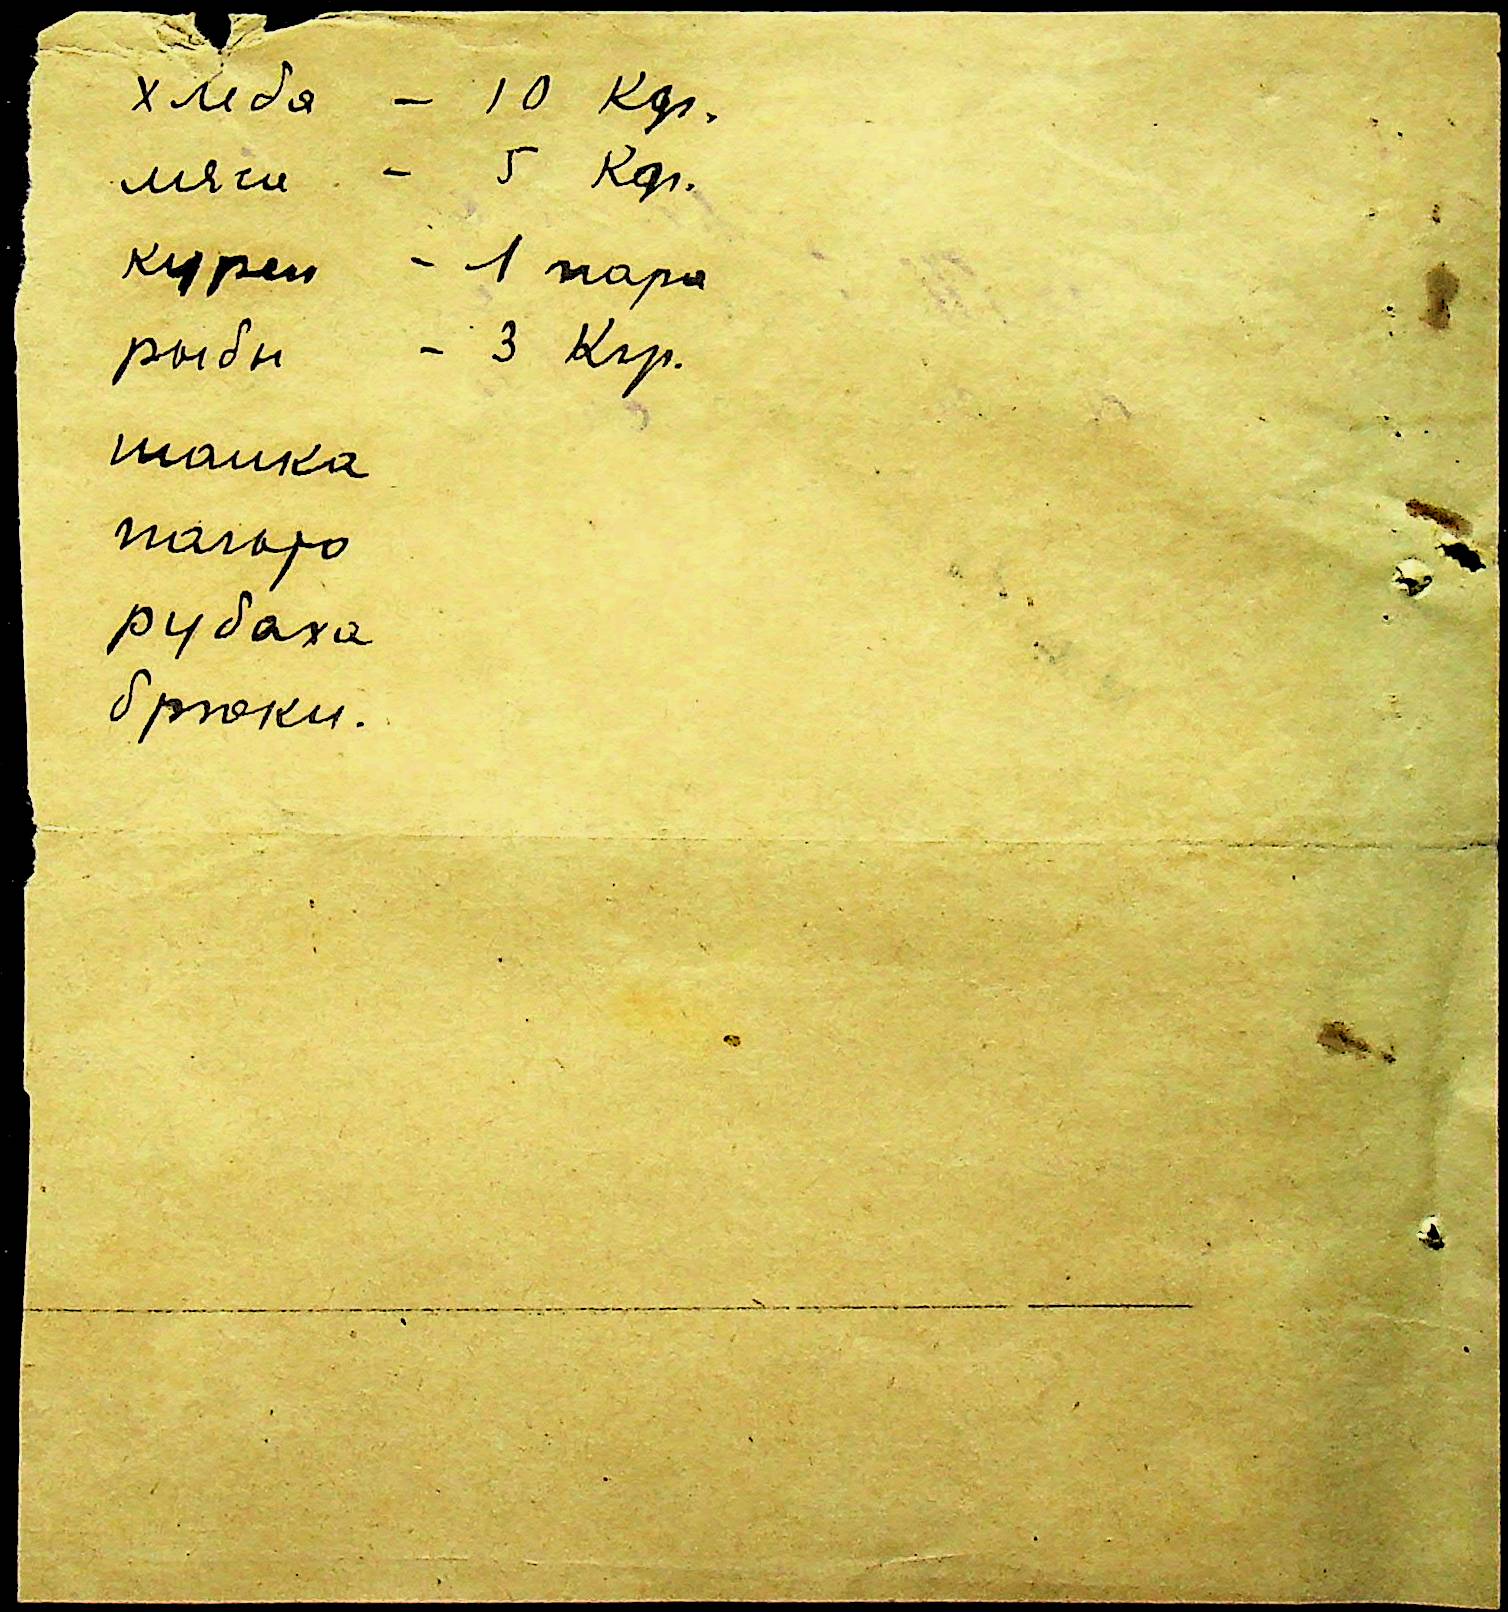 хлеба - 10 Кгр.
мяса - 5 Кгр.
курей - 1 пара
рыбы - 3 Кгр.
шапка
пальто
рубаха
брюки.